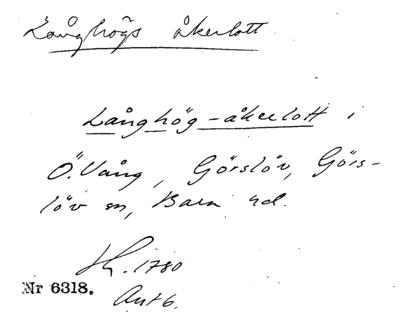 Långhögs åkerlott
Långhög-åkerlott i
Ö. Vång, Görslöv, Görs-
löv sn, Bara hd.
Sk. 1780
Nr 6318.
Ant 6.